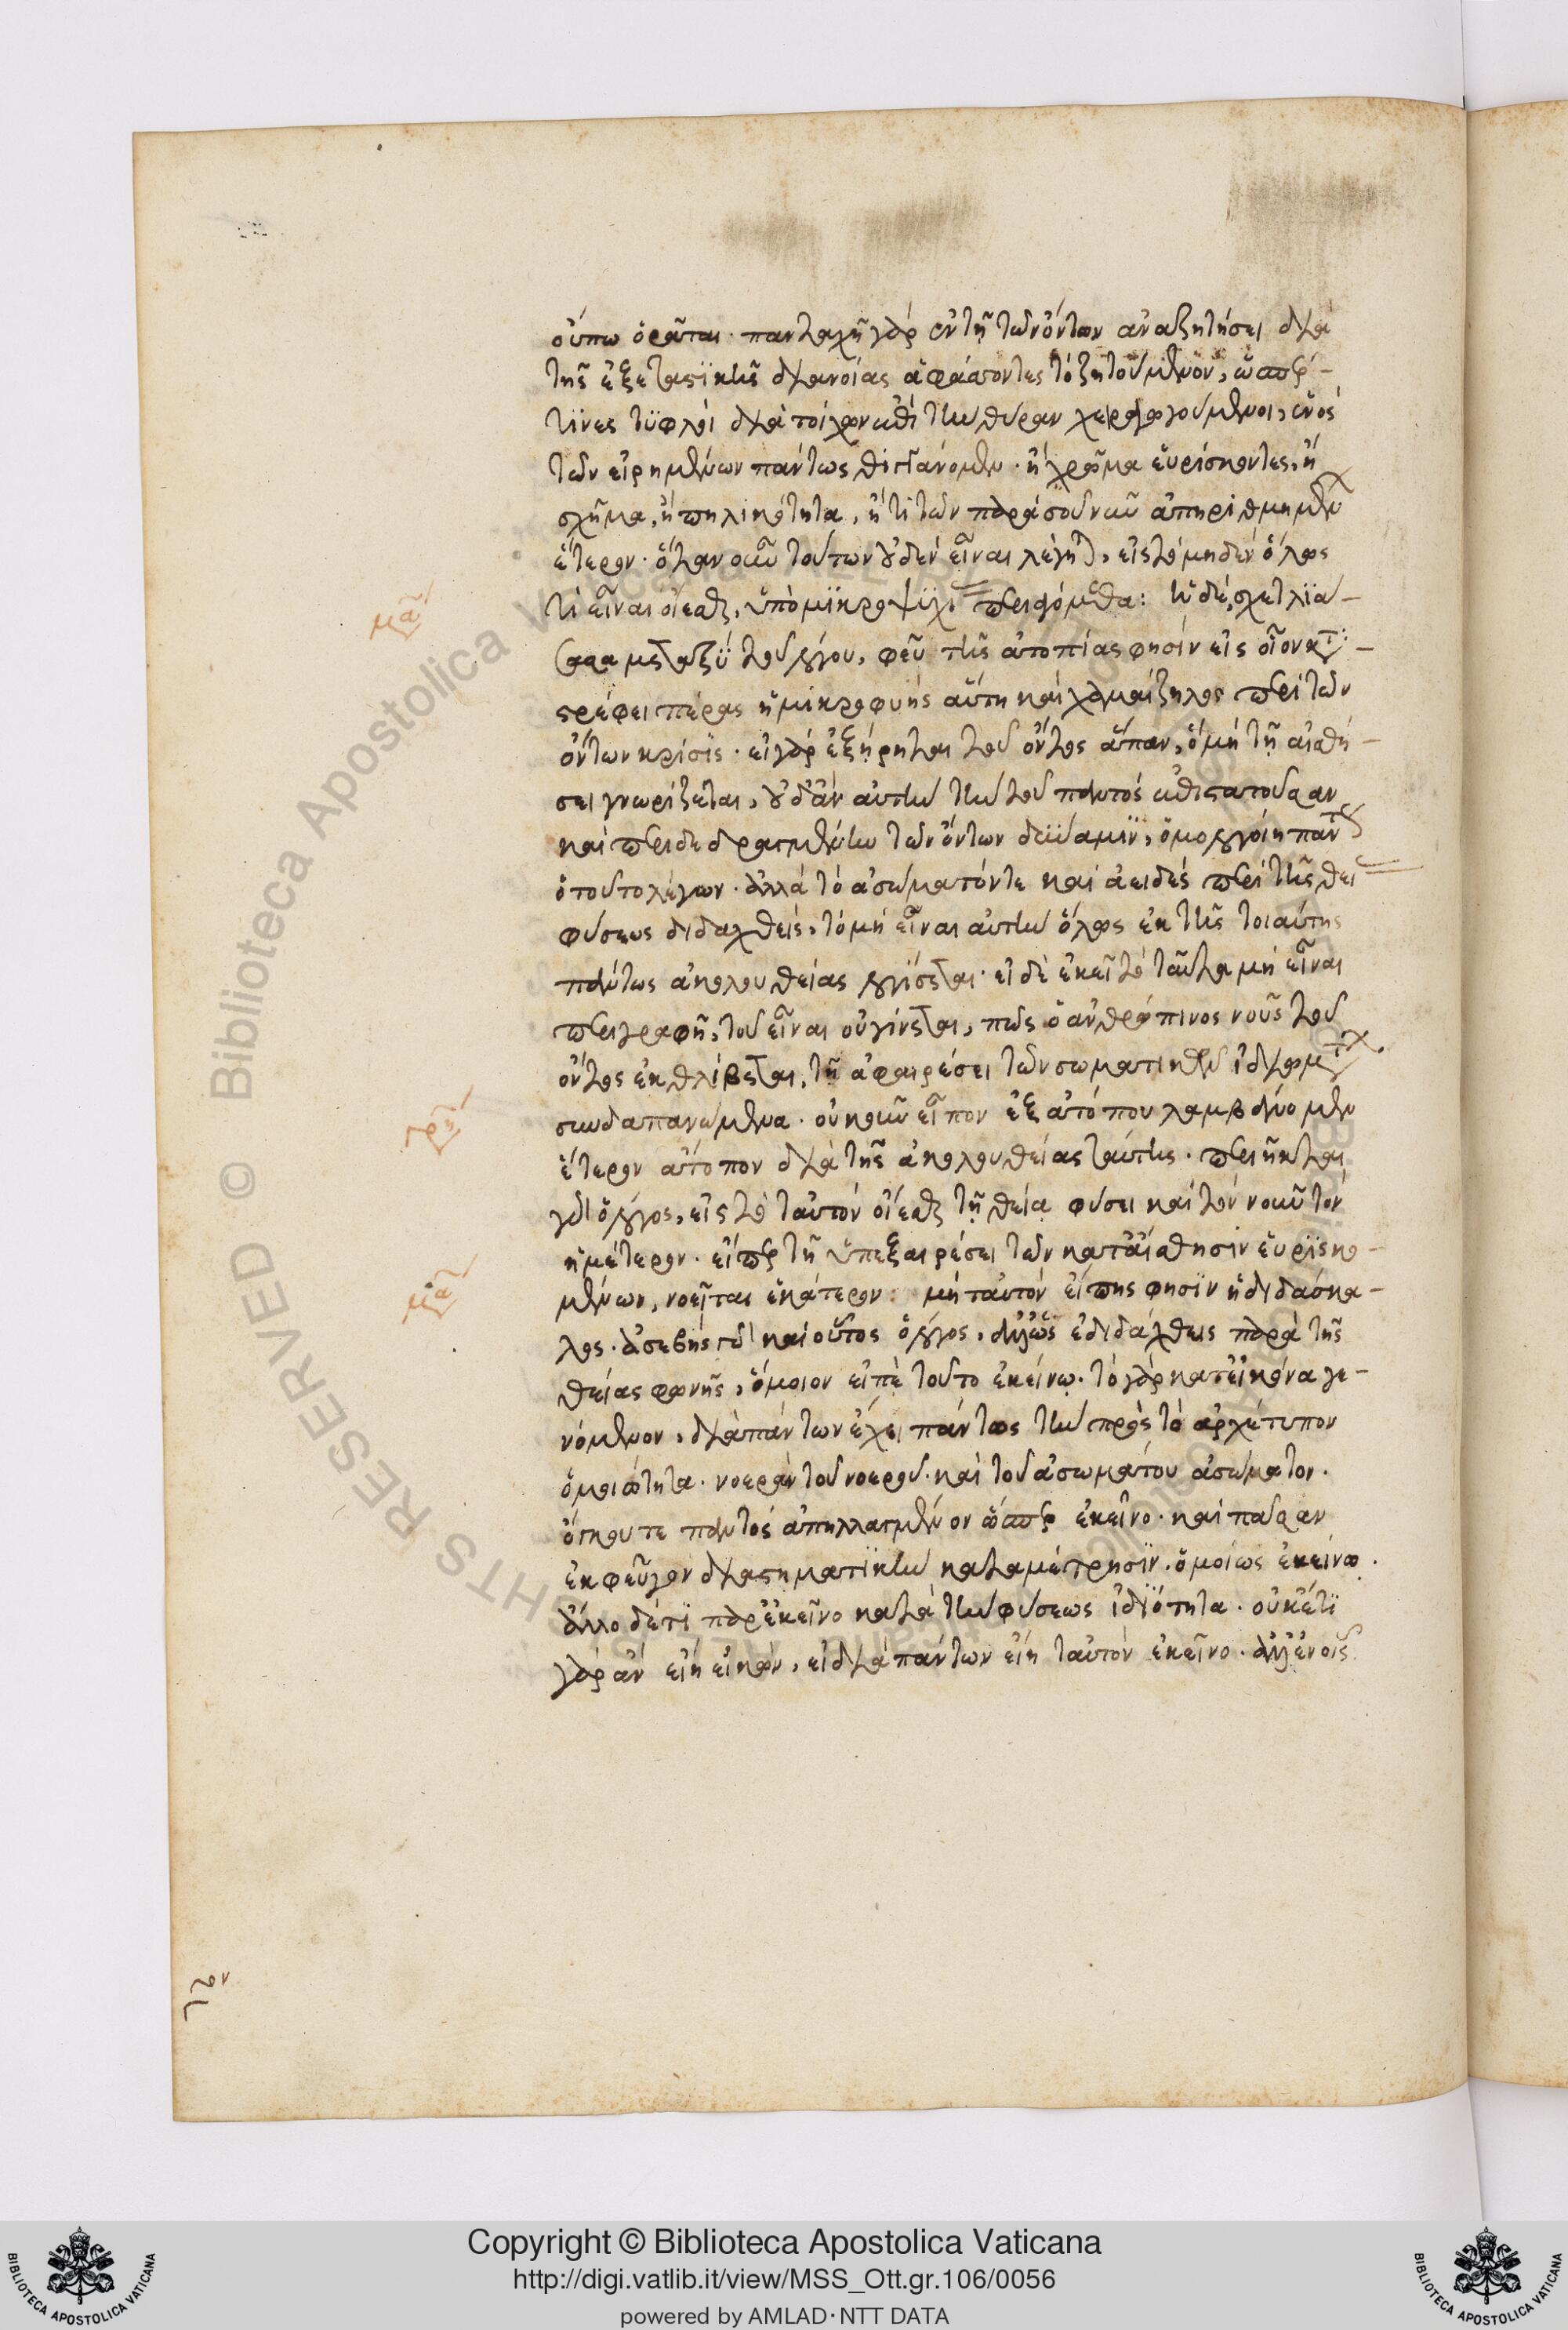 οὔπω ὁρᾶται· πανταχῆ γὰρ ἐν τῇ τῶν ὄντων ἀναζητήσει διὰ
τῆς ἐξεταστικῆς διανοίας ἀφάσσοντες τὸ ζητούμενον, ὥσπερ
τινὲς τυφλοὶ διὰ τοίχων ἐπὶ τὴν θύραν χειραγωγούμενοι, ἑνὸς
τῶν εἰρημένων πάντως θιγγάνομεν· ἢ χρῶμα εὑρίσκοντες, ἢ
σχῆμα, ἢ πηλικότητα, ἤ τι τῶν παρὰ σοῦ νῦν ἀπηριθμημένων
ἕτερον· ὅταν οὖν τούτων οὐδὲν εἶναι λέγηται, εἰς τὸ μηδὲν ὅλως
τὶ εἶναι οἴεσθαι, ὑπὸ μικροψυχίας περιαγόμεθα: ἡ δὲ, σχετλιά–
σασα μεταξὺ τοῦ λόγου, φεῦ τῆς ἀτοπίας φησὶν εἰς οἷον κατα–
στρέφει πέρας ἡ μικροφυὴς αὕτη καὶ χαμαίζηλος περὶ τῶν
ὄντων κρίσις· εἰ γὰρ ἐξῄρηται τοῦ ὄντος ἅπαν, ὃ μὴ τῇ αἰσθή–
σει γνωρίζεται, οὐδ' ἂν αὐτὴν τὴν τοῦ παντὸς ἐπιστατοῦσαν
καὶ περιδεδραγμένην τῶν ὄντων δύναμιν, ὁμολογοίη πάντως
ὁ τοῦτο λέγων· ἀλλὰ τὸ ἀσώματόν τε καὶ ἀειδὲς περὶ τῆς θεί
φύσεως διδαχθεὶς, τὸ μὴ εἶναι αὐτὴν ὅλως ἐκ τῆς τοιαύτης
πάντως ἀκολουθείας λογίσεται· εἰ δὲ ἐκεῖ τὸ ταῦτα μὴ εἶναι
περιγραφῆ, τοῦ εἶναι οὐ γίνεται, πῶς ὁ ἀνθρώπινος νοῦς τοῦ
ὄντος ἐκθλίβεται, τῇ ἀφαιρέσει τῶν σωματικῶν ἰδιωμάτων
συνδαπανώμενα· οὐκοῦν εἶπον ἐξ ἀτόπου λαμβάνομεν
ἕτερον ἄτοπον διὰ τῆς ἀκολουθείας ταύτης· περιῆκται
γὰρ ὁ λόγος, εἰς τὸ ταὐτὸν οἴεσθαι τῇ θείᾳ φύσει καὶ τὸν νοῦν τὸν
ἡμέτερον· εἴπερ τῇ ὑπεξαιρέσει τῶν κατ' αἴσθησιν εὑρισκο–
μένων, νοεῖται ἑκάτερον: μὴ ταὐτὸν εἴπῃς φησὶν ἡ διδάσκα–
λος· ἀσεβὴς γὰρ καὶ οὗτος ὁ λόγος, ἀλλ' ὡς ἐδιδάχθης παρὰ τῆς
θείας φωνῆς, ὅμοιον εἰπὲ τοῦτο ἐκείνῳ· τὸ γὰρ κατ' εἰκόνα γε–
νόμενον, διὰ πάντων ἔχει πάντως τὴν πρὸς τὸ ἀρχέτυπον
ὁμοιότητα· νοερὰν τοῦ νοεροῦ· καὶ τοῦ ἀσωμάτου ἀσώματον·
ὄγκου τε παντὸς ἀπηλλαγμένον ὥσπερ ἐκεῖνο· καὶ πᾶσαν
ἐκφεῦγον διαστηματικὴν καταμέτρησιν· ὁμοίως ἐκείνῳ·
ἄλλο δέ τι παρ' ἐκεῖνο κατὰ τὴν φύσεως ἰδιότητα· οὐκέτι
γὰρ ἂν εἴη εἰκὼν, εἰ διὰ πάντων εἴη ταὐτὸν ἐκεῖνο· ἀλλ' ἐν οἷς
Copyright © Biblioteca Apostolica Vaticana
http://digi.vatlib.it/view/MSS_Ott.gr.106/0056
powered by AMLAD·NTT DATA
BIBLIOTECA APOSTOLICA VATICANA
BIBLIOTECA APOSTOLICA VATICANA